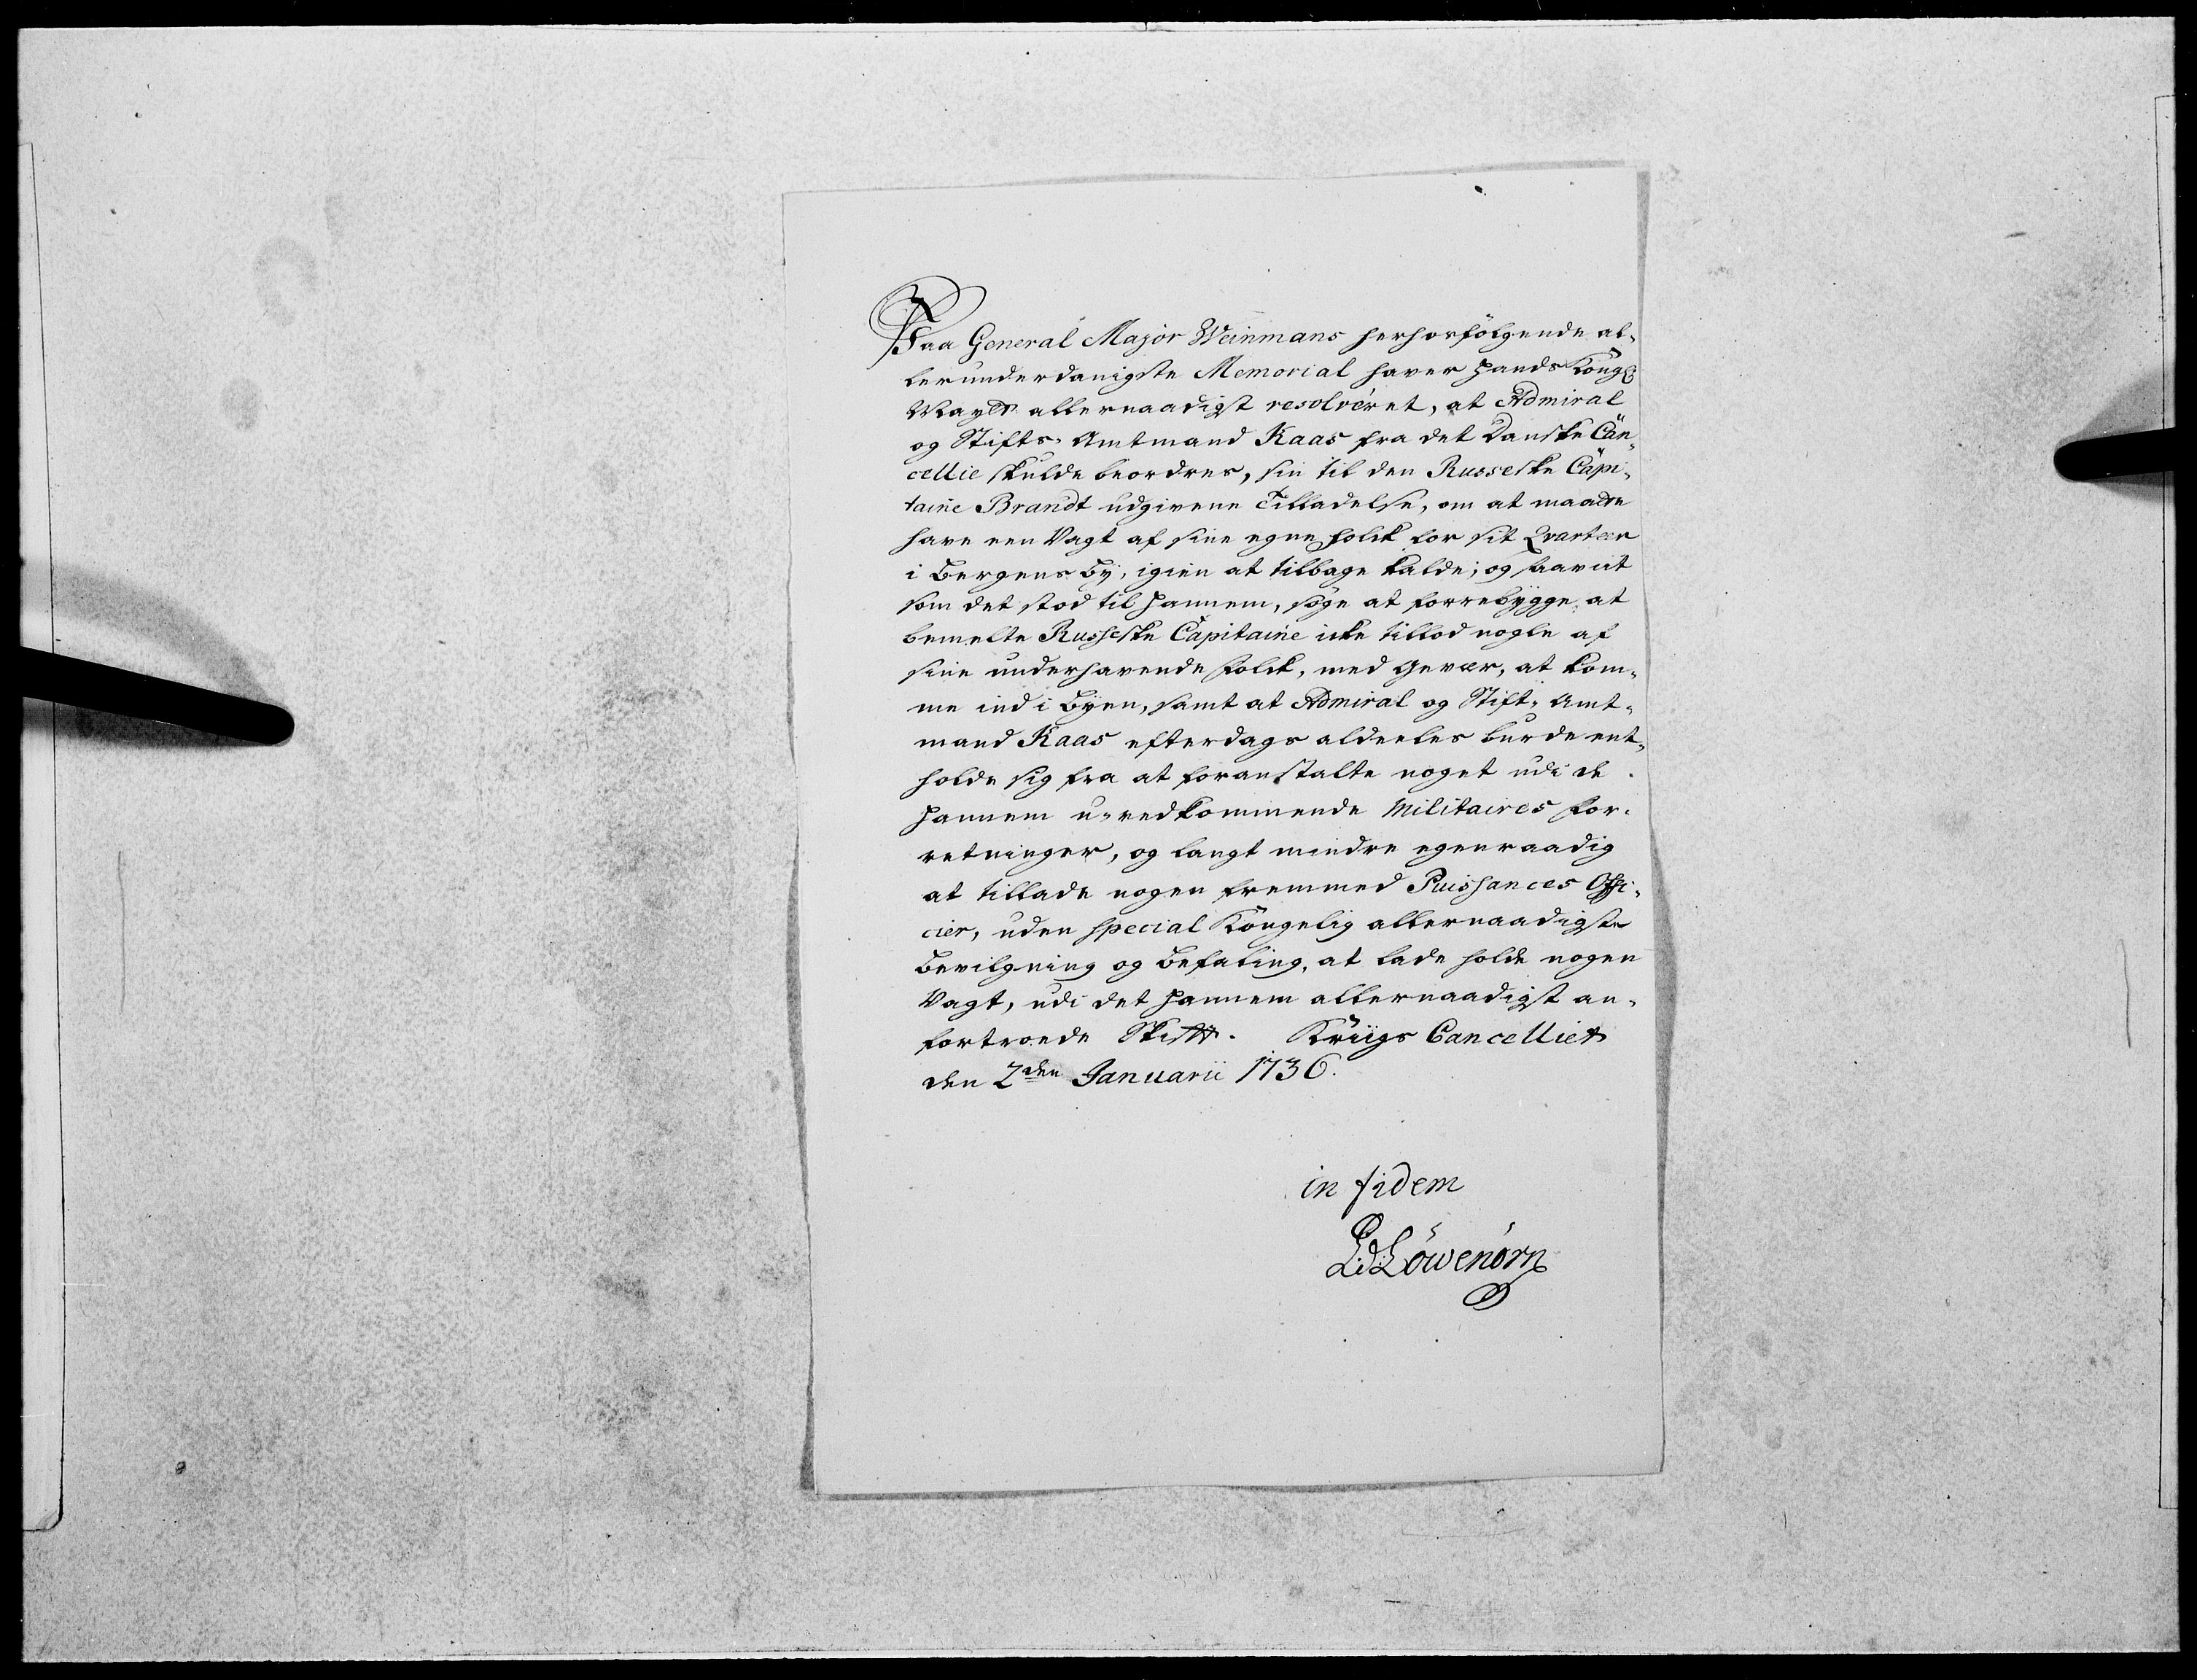 Paa General Major Weinmans herhosfölgende al-
lerunderdanigste Memorial haver Hands Kongl.
Mayts allernaadigst resolvéret, at Admiral
og Stifts-Amtmand Kaas fra det Danske Can-
cellie skulde beordres, sin til den Russeske Capi-
taine Brandt udgivene Tilladelse, om at maatte
have een Vagt af sine egne folck for sit Qvarteer
i Bergens By, igien at tilbage kalde; og saavit
som det stod til Hannem, söge at forrebygge, at
bemelte Russeske Capitaine icke tillod nogle af
sine underhavende folck, med Gevær, at kom-
me ind i Byen, samt at Admiral og Stift-Amt-
mand Kaas efterdags aldeeles burde ent-
holde sig fra at foranstalte noget udi de
Hannem u-vedkommende Militaires for-
retninger, og langt mindre egenraadig
at tillade nogen fremmed Puissances Offi-
cier, uden special Kongelig allernaadigste
Bevilgning og Befaling, at lade holde nogen
Vagt, udi det Hannem allernaadigst an-
fortroede Stift. Kriigs Cancelliet
den 2den Januarii 1736.
in fidem
Löwenörn